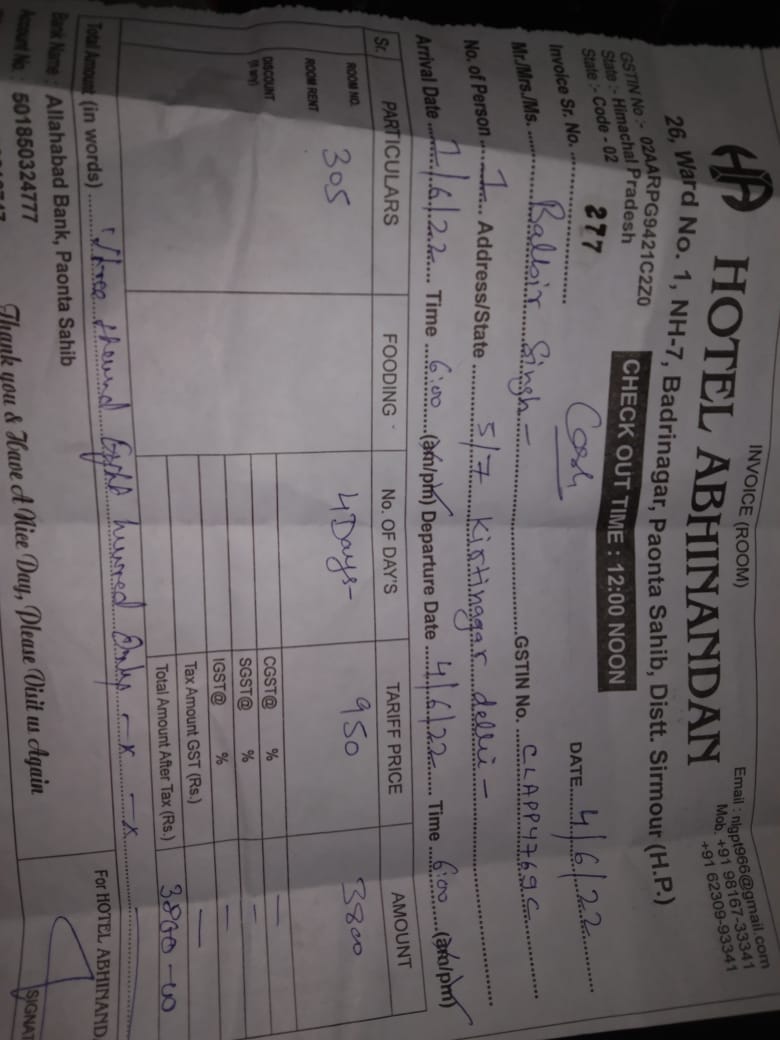 INVOICE (ROOM)
Email : nlgpt966@gmail.com
Mob. +91 98167-33341
+91 62309-93341
HA HOTEL ABHINANDAN
26, Ward No. 1, NH-7, Badrinagar, Paonta Sahib, Distt. Sirmour (H.P.)
GSTIN No :- 02AARPG9421C2Z0
State :- Himachal Pradesh
State :- Code - 02
CHECK OUT TIME : 12:00 NOON
Invoice Sr. No. 277
Cash
DATE 4/6/22
Mr./Mrs./Ms. Balbir Singh - GSTIN No. CLAPP4769C
No. of Person 1 Address/State 5/7 Kirtinagar delhi -
Arrival Date 1/6/22 Time 6:00 (am/pm) Departure Date 4/6/22 Time 6:00 (am/pm)
Sr. PARTICULARS FOODING No. OF DAY'S TARIFF PRICE AMOUNT
ROOM NO. 305 4 Days - 950 3800
ROOM RENT
DISCOUNT
(If any)
CGST@ % —
SGST@ % —
IGST@ % —
Tax Amount GST (Rs.) —
Total Amount After Tax (Rs.) 3800-00
Total Amount (in words) Three thousand Eight hundred Only -x -x
Bank Name : Allahabad Bank, Paonta Sahib
Account No. : 501850324777
For HOTEL ABHINAND
SIGNAT
Thank you & Have A Nice Day, Please Visit us Again